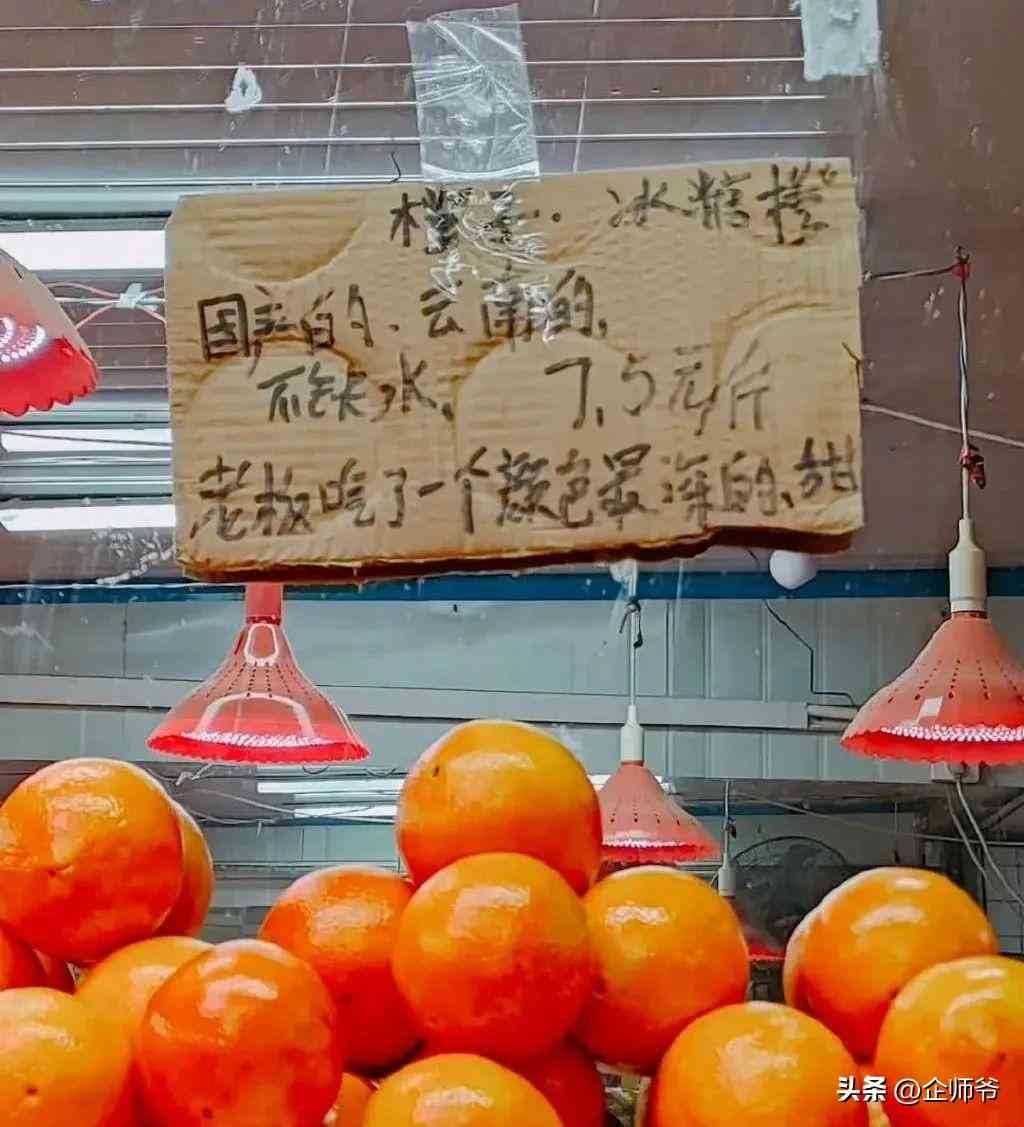 橙子. 冰糖橙
国产的、云南的,
不缺水, 7.5元/斤
老板吃了一个颜色最深的、甜
头条 @企师爷